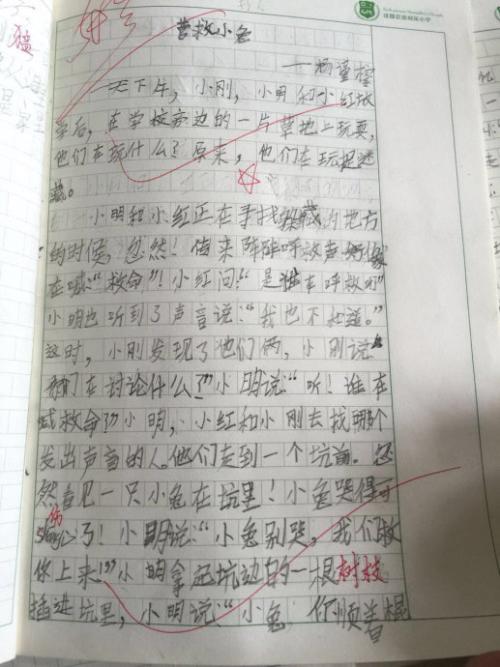 营救小兔
一天下午，小刚，小明和小红放
学后，在学校旁边的一片草地上玩耍，
他们在玩什么？原来，他们在玩捉迷
藏。
小明和小红正在寻找躲藏的地方
的时候，忽然！传来阵阵呼救声好像
在喊："救命"！小红问："是谁在呼救的"
小明也听到了声音说："我也不知道。"
这时，小刚发现了他们俩，小刚说
你们在讨论什么？"小明说："听！谁在
喊救命？"小明，小红和小刚去找那个
发出声音的人。他们走到一个坑前。忽
然看见一只小兔在坑里！小兔哭得可
伤心了！小明说："小兔别哭，我们救
你上来！"小明拿起坑边的一根树枝
插进坑里，小明说："小兔 你顺着棍